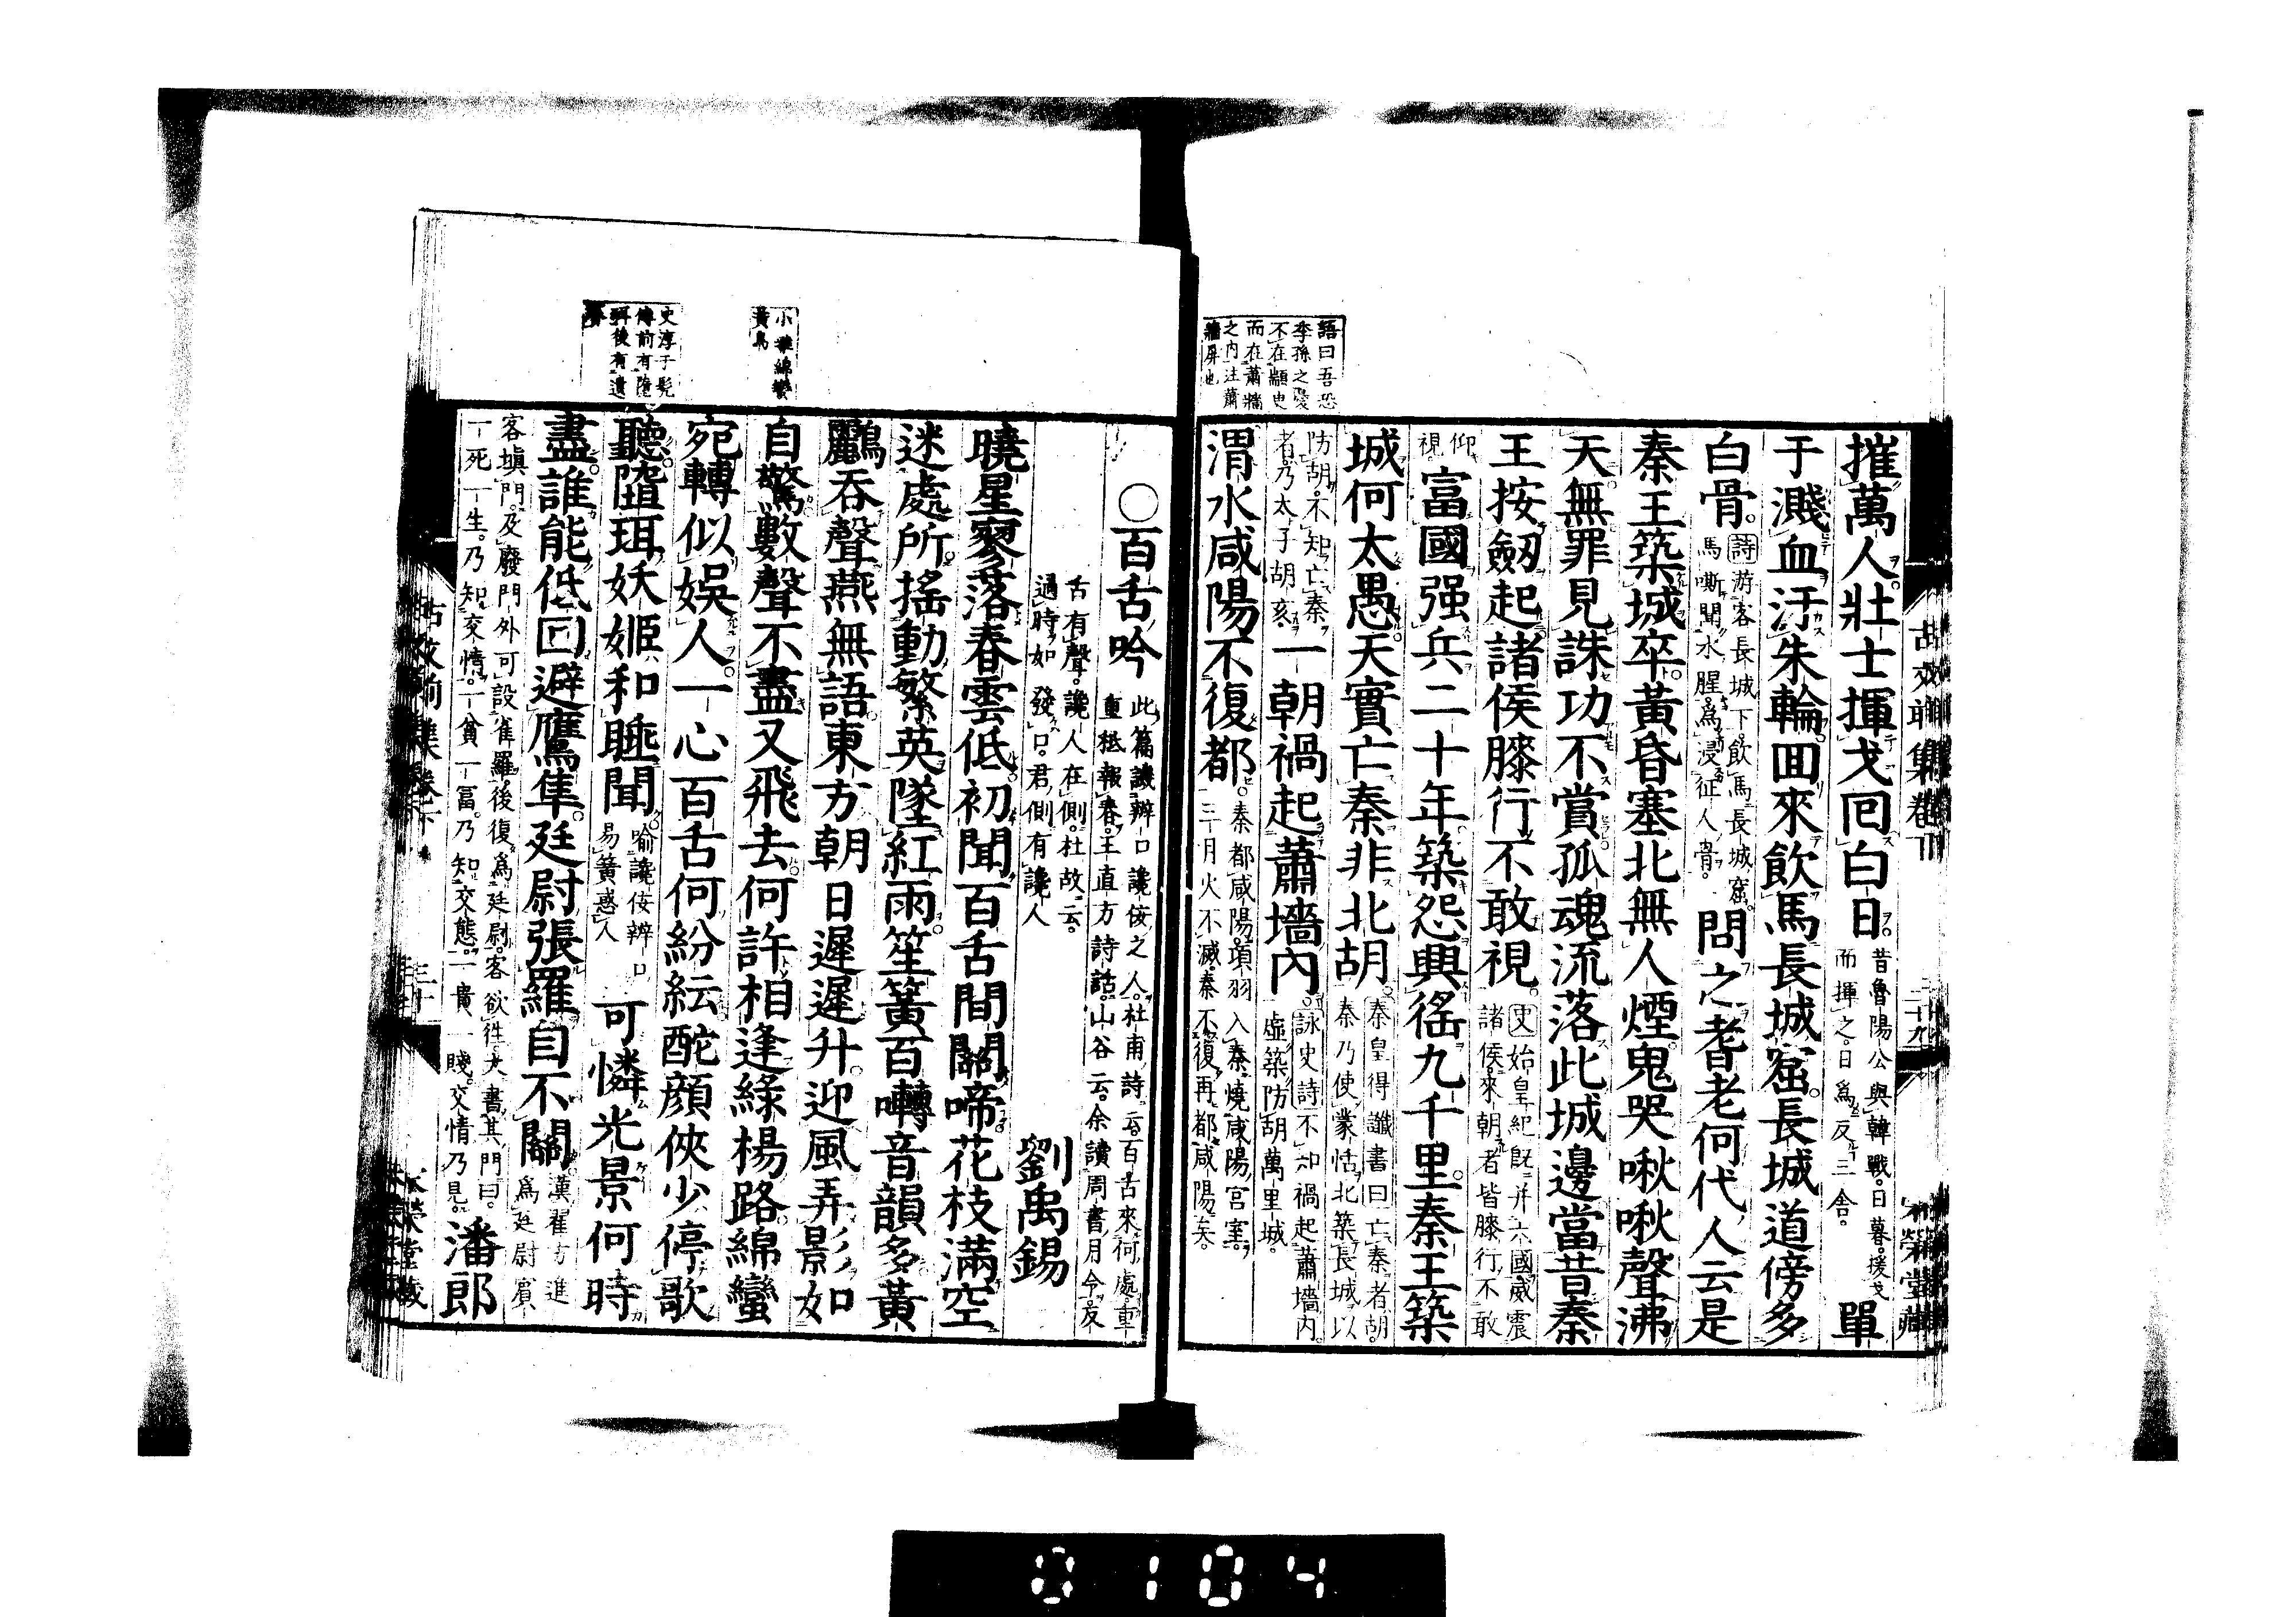 語曰吾恐
季孫之憂
不在顓臾
而在蕭牆
之内注蕭
牆屏也
摧萬人壯士揮戈回白日
昔魯陽公與韓戰日暮援戈
而揮之日為反三舍
單
于濺血汙朱輪回來飲馬長城窟長城道傍多
白骨
詩游客長城下飲馬長城窟
馬嘶聞水腥為浸征人骨
問之耆老何代人云是
秦王築城卒黃昏塞北無人煙鬼哭啾啾聲沸
天無罪見誅功不賞孤魂流落此城邊當昔秦
王按劒起諸侯膝行不敢視
史始皇紀既并六國威震
諸侯來朝者皆膝行不敢
仰
視
富國强兵二十年築怨興徭九千里秦王築
城何太愚天實亡秦非北胡
秦皇得讖書曰亡秦者胡
秦乃使蒙恬北築長城以
防胡不知亡秦
者乃太子胡亥
一朝禍起蕭墻內
詠史詩不知禍起蕭墻内
虛築防胡萬里城
渭水咸陽不復都
秦都咸陽項羽入秦燒咸陽宮室
三月火不滅秦不復再都咸陽矣
古文前集卷下
二十九
小雅綿蠻
黃鳥
史淳于髡
傳前有墮
珥後有遺
簪
〇百舌吟
此篇譏辨口讒佞之人杜甫詩云百舌來何處重
重秪報春王直方詩話山谷云余讀周書月令反
舌有聲讒人在側杜故云
過時如發口君側有讒人
劉禹錫
曉星寥落春雲低初聞百舌間關啼花枝滿空
迷處所搖動繁英墜紅雨笙簧百囀音韻多黃
鸝吞聲燕無語東方朝日遲遲升迎風弄影如
自驚數聲不盡又飛去何許相逢綠楊路綿蠻
宛轉似娛人一心百舌何紛紜酡顏俠少停歌
聽墮珥妖姬和睡聞
喻讒佞辨口
易簧惑人
可憐光景何時
盡誰能低回避鷹隼廷尉張羅自不關
漢翟方進
為廷尉賓
客塡門及廢門外可設雀羅後復為廷尉客欲徃大書其門曰
一死一生乃知交情一貧一富乃知交態一貴一賤交情乃見
潘郎
古文前集卷下
三十
0104